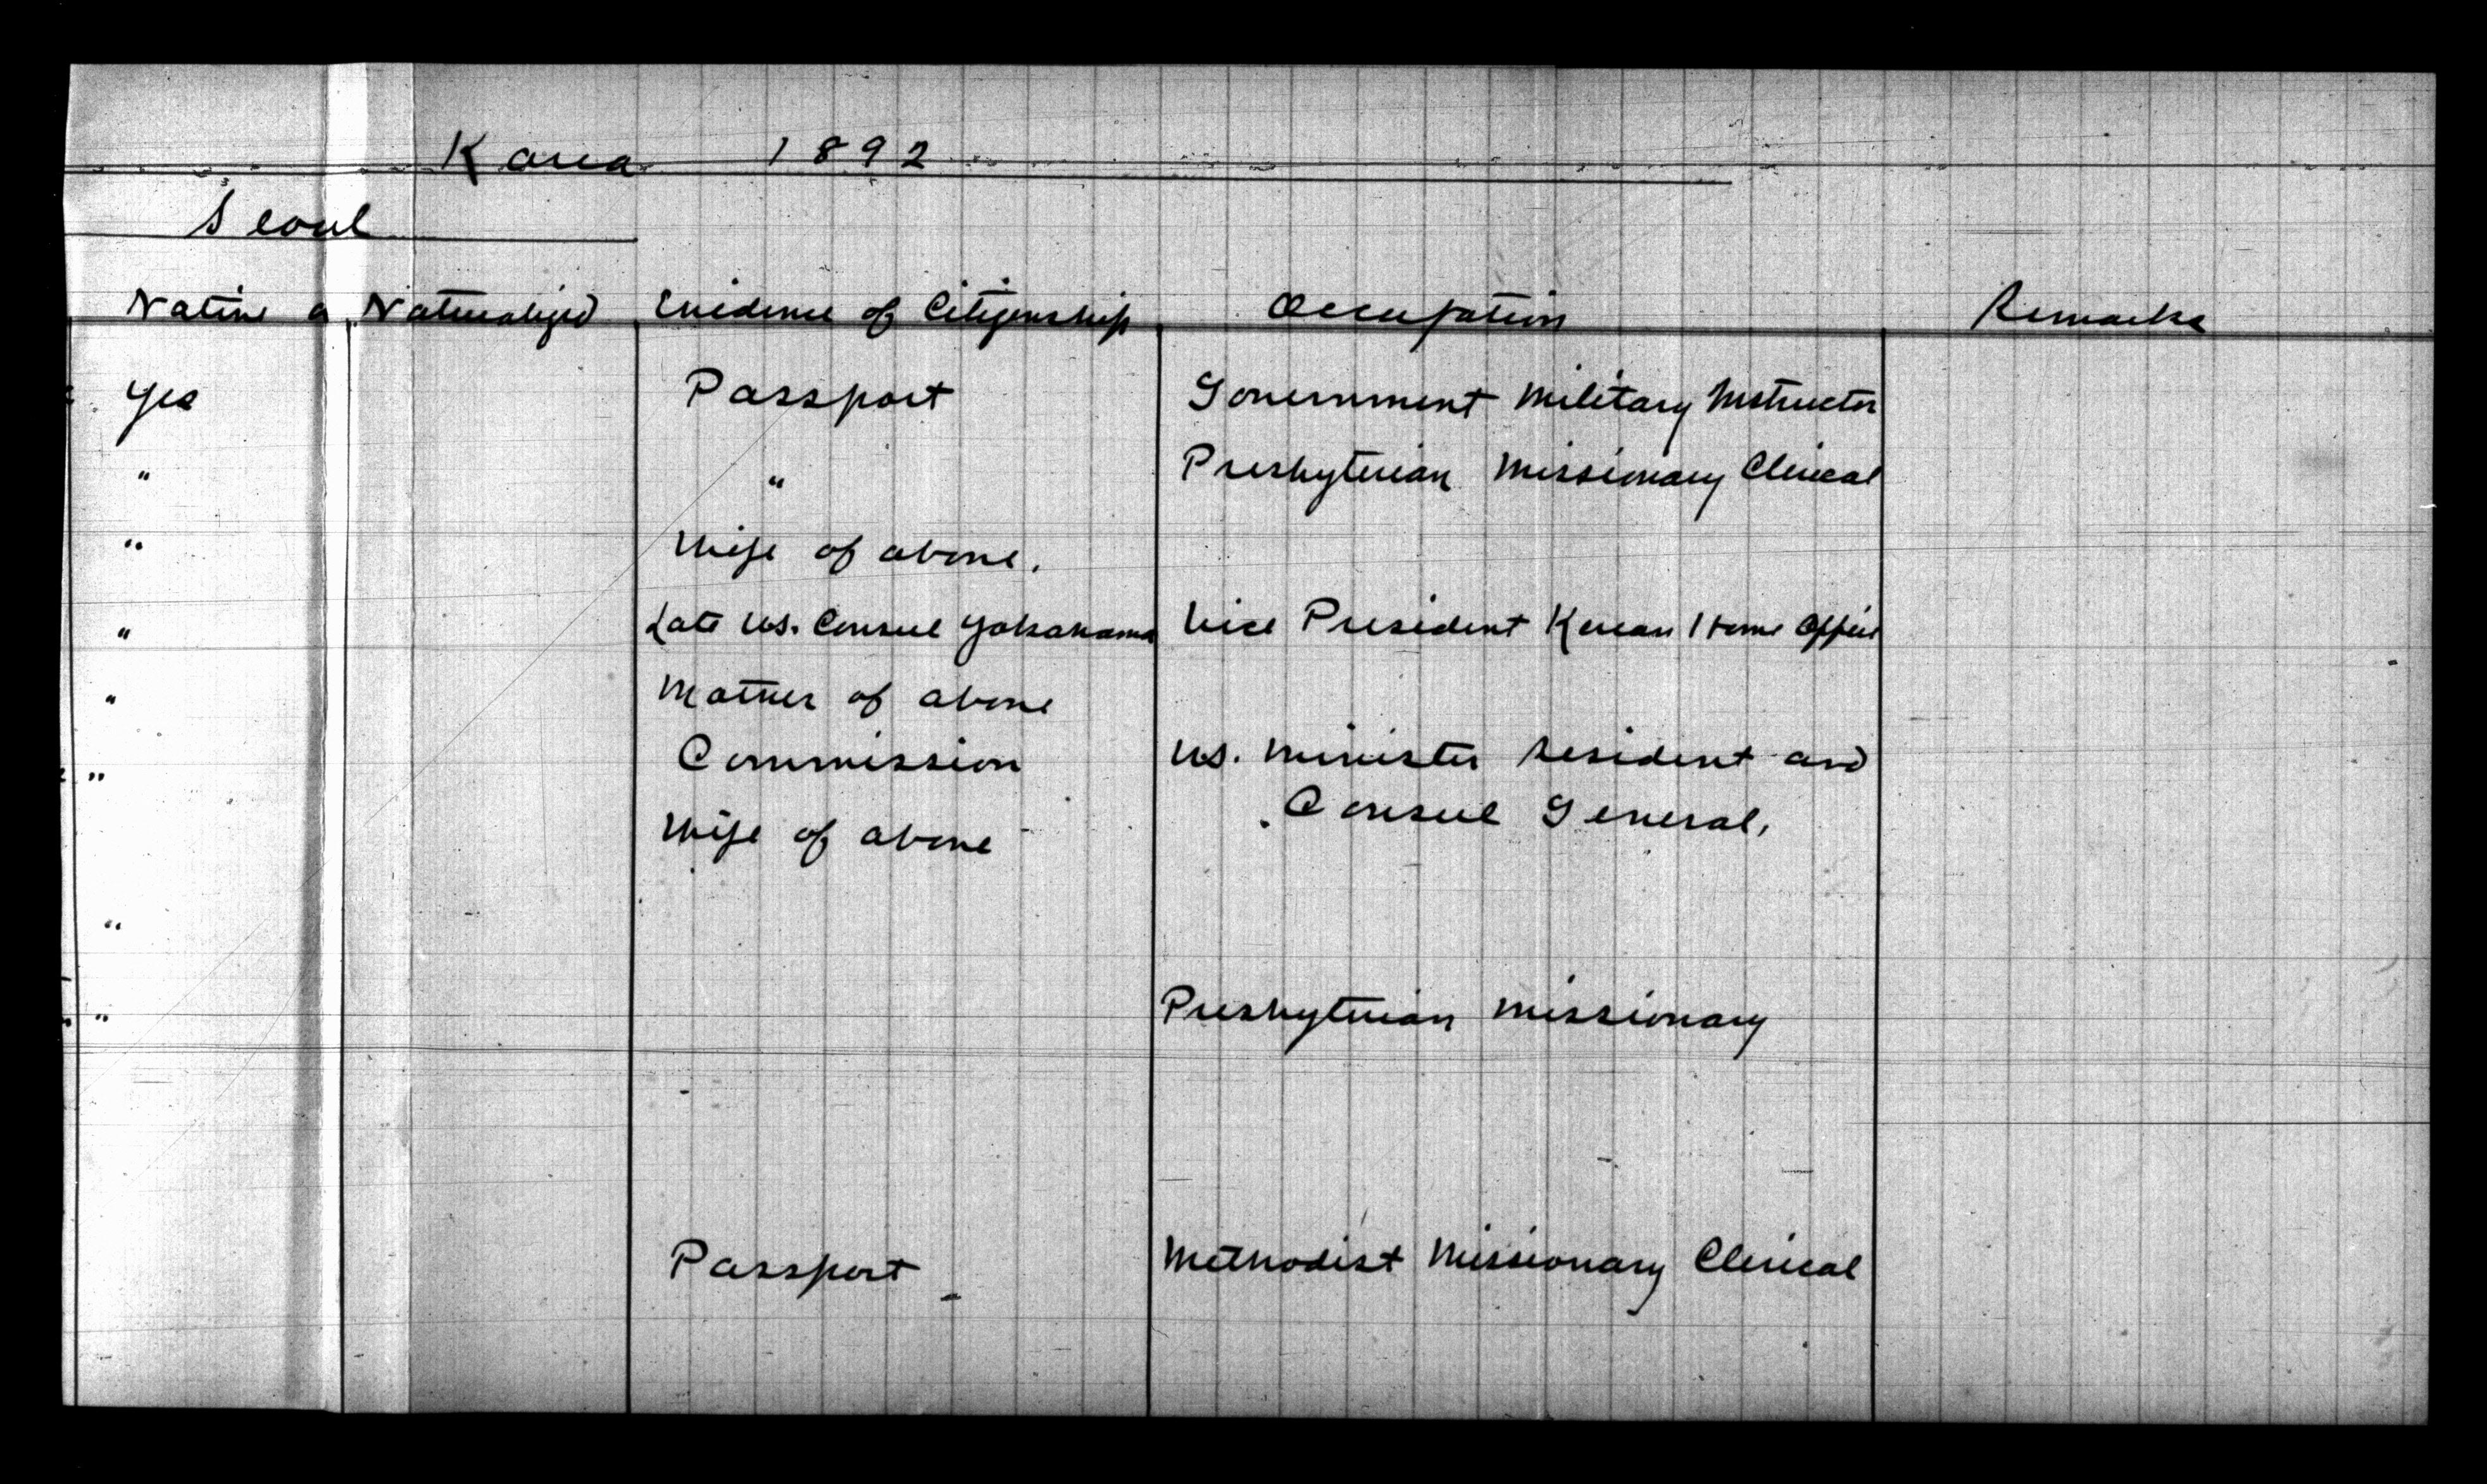 Korea 1892
Seoul
Native or Naturalized Evidence of Citizenship Occupation Remarks
Yes Passport Government Military Instructor
" " Presbyterian Missionary Clerical
" Wife of above.
" Late U.S. Consul Yokahama Vice President Korean Home Office
" Mother of above
" Commission U.S. Minister Resident and
Consul General,
Wife of above
"
" Presbyterian Missionary
Passport Methodist Missionary Clerical